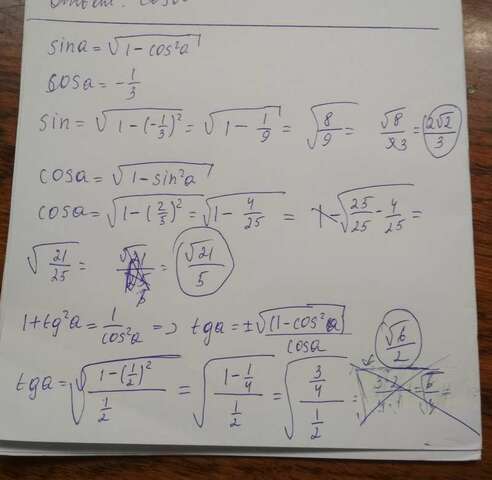 sina = √(1 - cos²a)
cosa = -1/3
sin = √(1 - (-1/3)²) = √(1 - 1/9) = √(8/9) = √8/3 = 2√2/3
cosa = √(1 - sin²a)
cosa = √(1 - (2/5)²) = √(1 - 4/25) = √(25/25 - 4/25) =
√(21/25) = = √21/5
1 + tg²a = 1/cos²a => tga = ±√(1 - cos²a)/cosa √6/2
tga = √((1 - (1/2)²)/(1/2)) = √((1 - 1/4)/(1/2)) = √((3/4)/(1/2)) =